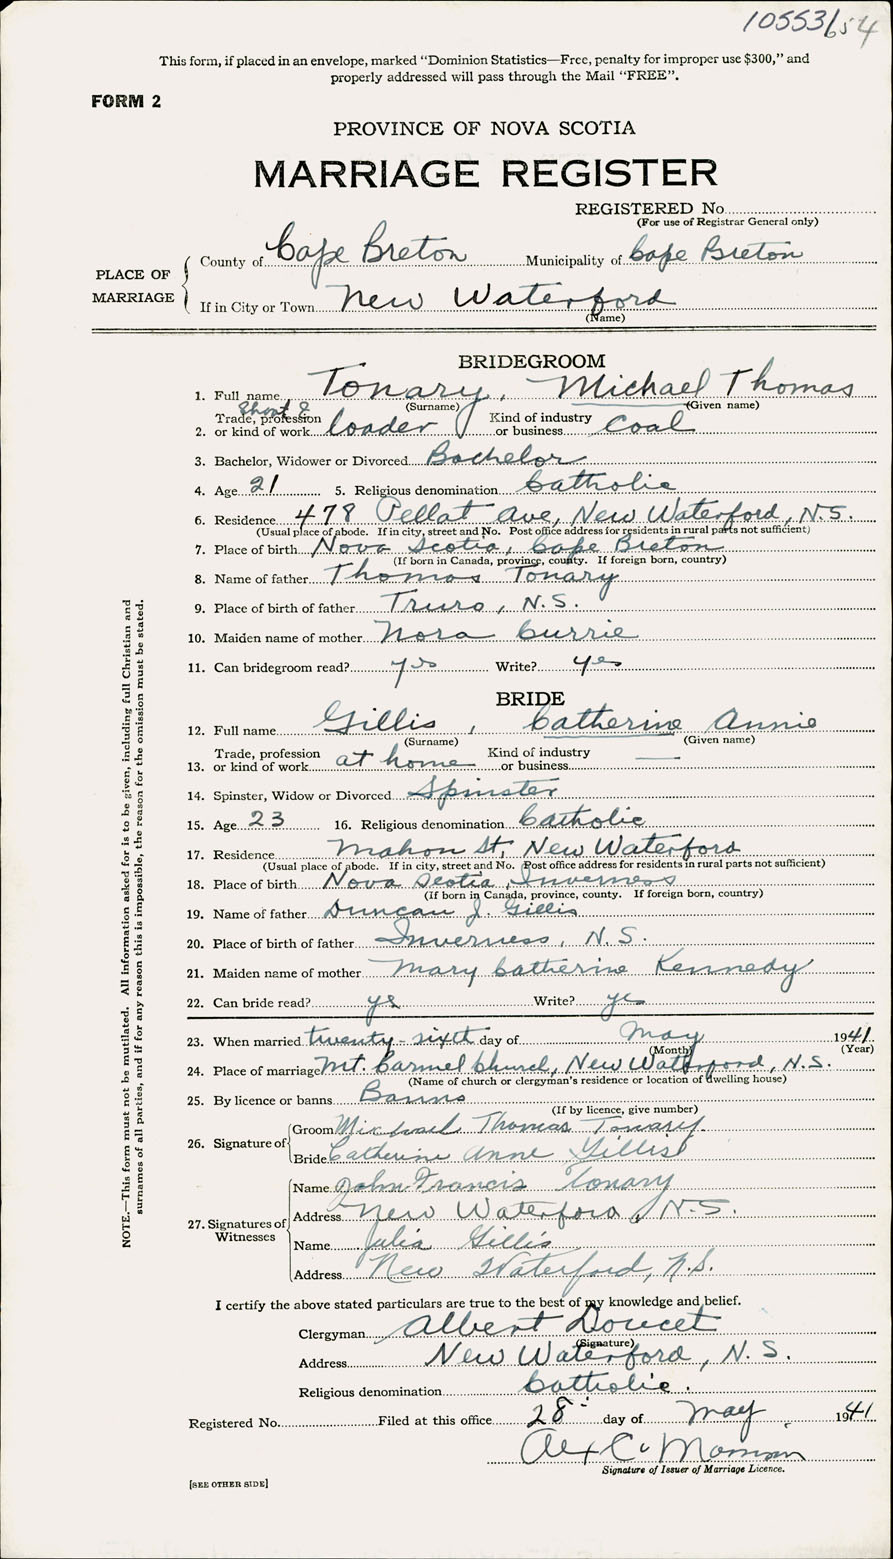 10553/654
This form, if placed in an envelope, marked “Dominion Statistics—Free, penalty for improper use $300,” and
properly addressed will pass through the Mail “FREE”.
FORM 2
PROVINCE OF NOVA SCOTIA
MARRIAGE REGISTER
REGISTERED No.
(For use of Registrar General only)
PLACE OF MARRIAGE
County of Cape Breton Municipality of Cape Breton
If in City or Town New Waterford
(Name)
BRIDEGROOM
1. Full name Tonary, Michael Thomas
(Surname) (Given name)
2. Trade, profession or kind of work Shoot & loader Kind of industry or business Coal
3. Bachelor, Widower or Divorced Bachelor
4. Age 21 5. Religious denomination Catholic
6. Residence 478 Pellat Ave, New Waterford, N.S.
(Usual place of abode. If in city, street and No. Post office address for residents in rural parts not sufficient)
7. Place of birth Nova Scotia, Cape Breton
(If born in Canada, province, county. If foreign born, country)
8. Name of father Thomas Tonary
9. Place of birth of father Truro, N.S.
10. Maiden name of mother Nora Currie
11. Can bridegroom read? yes Write? yes
BRIDE
12. Full name Gillis, Catherine Annie
(Surname) (Given name)
13. Trade, profession or kind of work at home Kind of industry or business —
14. Spinster, Widow or Divorced Spinster
15. Age 23 16. Religious denomination Catholic
17. Residence Mahon St, New Waterford
(Usual place of abode. If in city, street and No. Post office address for residents in rural parts not sufficient)
18. Place of birth Nova Scotia, Inverness
(If born in Canada, province, county. If foreign born, country)
19. Name of father Duncan J. Gillis
20. Place of birth of father Inverness, N.S.
21. Maiden name of mother Mary Catherine Kennedy
22. Can bride read? yes Write? yes
23. When married twenty-sixth day of May 1941
(Month) (Year)
24. Place of marriage Mt. Carmel Church, New Waterford, N.S.
(Name of church or clergyman’s residence or location of dwelling house)
25. By licence or banns Banns
(If by licence, give number)
26. Signature of Groom Michael Thomas Tonary.
Bride Catherine Anne Gillis
27. Signatures of Witnesses
Name John Francis Tonary
Address New Waterford, N.S.
Name Julia Gillis
Address New Waterford, N.S.
I certify the above stated particulars are true to the best of my knowledge and belief.
Clergyman Albert Doucet
(Signature)
Address New Waterford, N.S.
Religious denomination Catholic.
Registered No. Filed at this office 28 day of May 1941
Alex C.
Signature of Issuer of Marriage Licence.
[SEE OTHER SIDE]
NOTE.—This form must not be mutilated. All information asked for is to be given, including full Christian and
surnames of all parties, and if for any reason this is impossible, the reason for the omission must be stated.